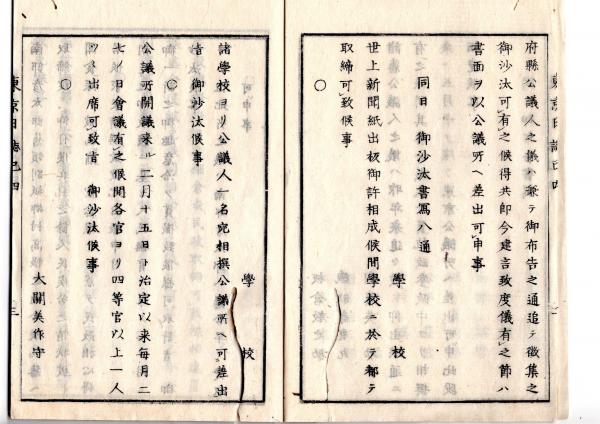 府縣公議人之儀ハ兼テ御布告之通追テ徴集之
御沙汰可有之候得共即今建言致度儀有之節ハ
書面ヲ以公議所ヘ差出可申事
同日御沙汰書寫八通
學校
世上新聞紙出板御許相成候間學校ニ於テ都テ
取締可致候事
○
學校
諸學校ヨリ公議人一名宛相撰公議所ヘ可差出
旨御沙汰候事
○
公議所開議来ル二月十五日ヨリ治定以来毎月二
七ノ日會議有之候間各官ヨリ四等官以上一人
ツヽ出席可致旨御沙汰候事
○
大關美作守
東京日誌巳四